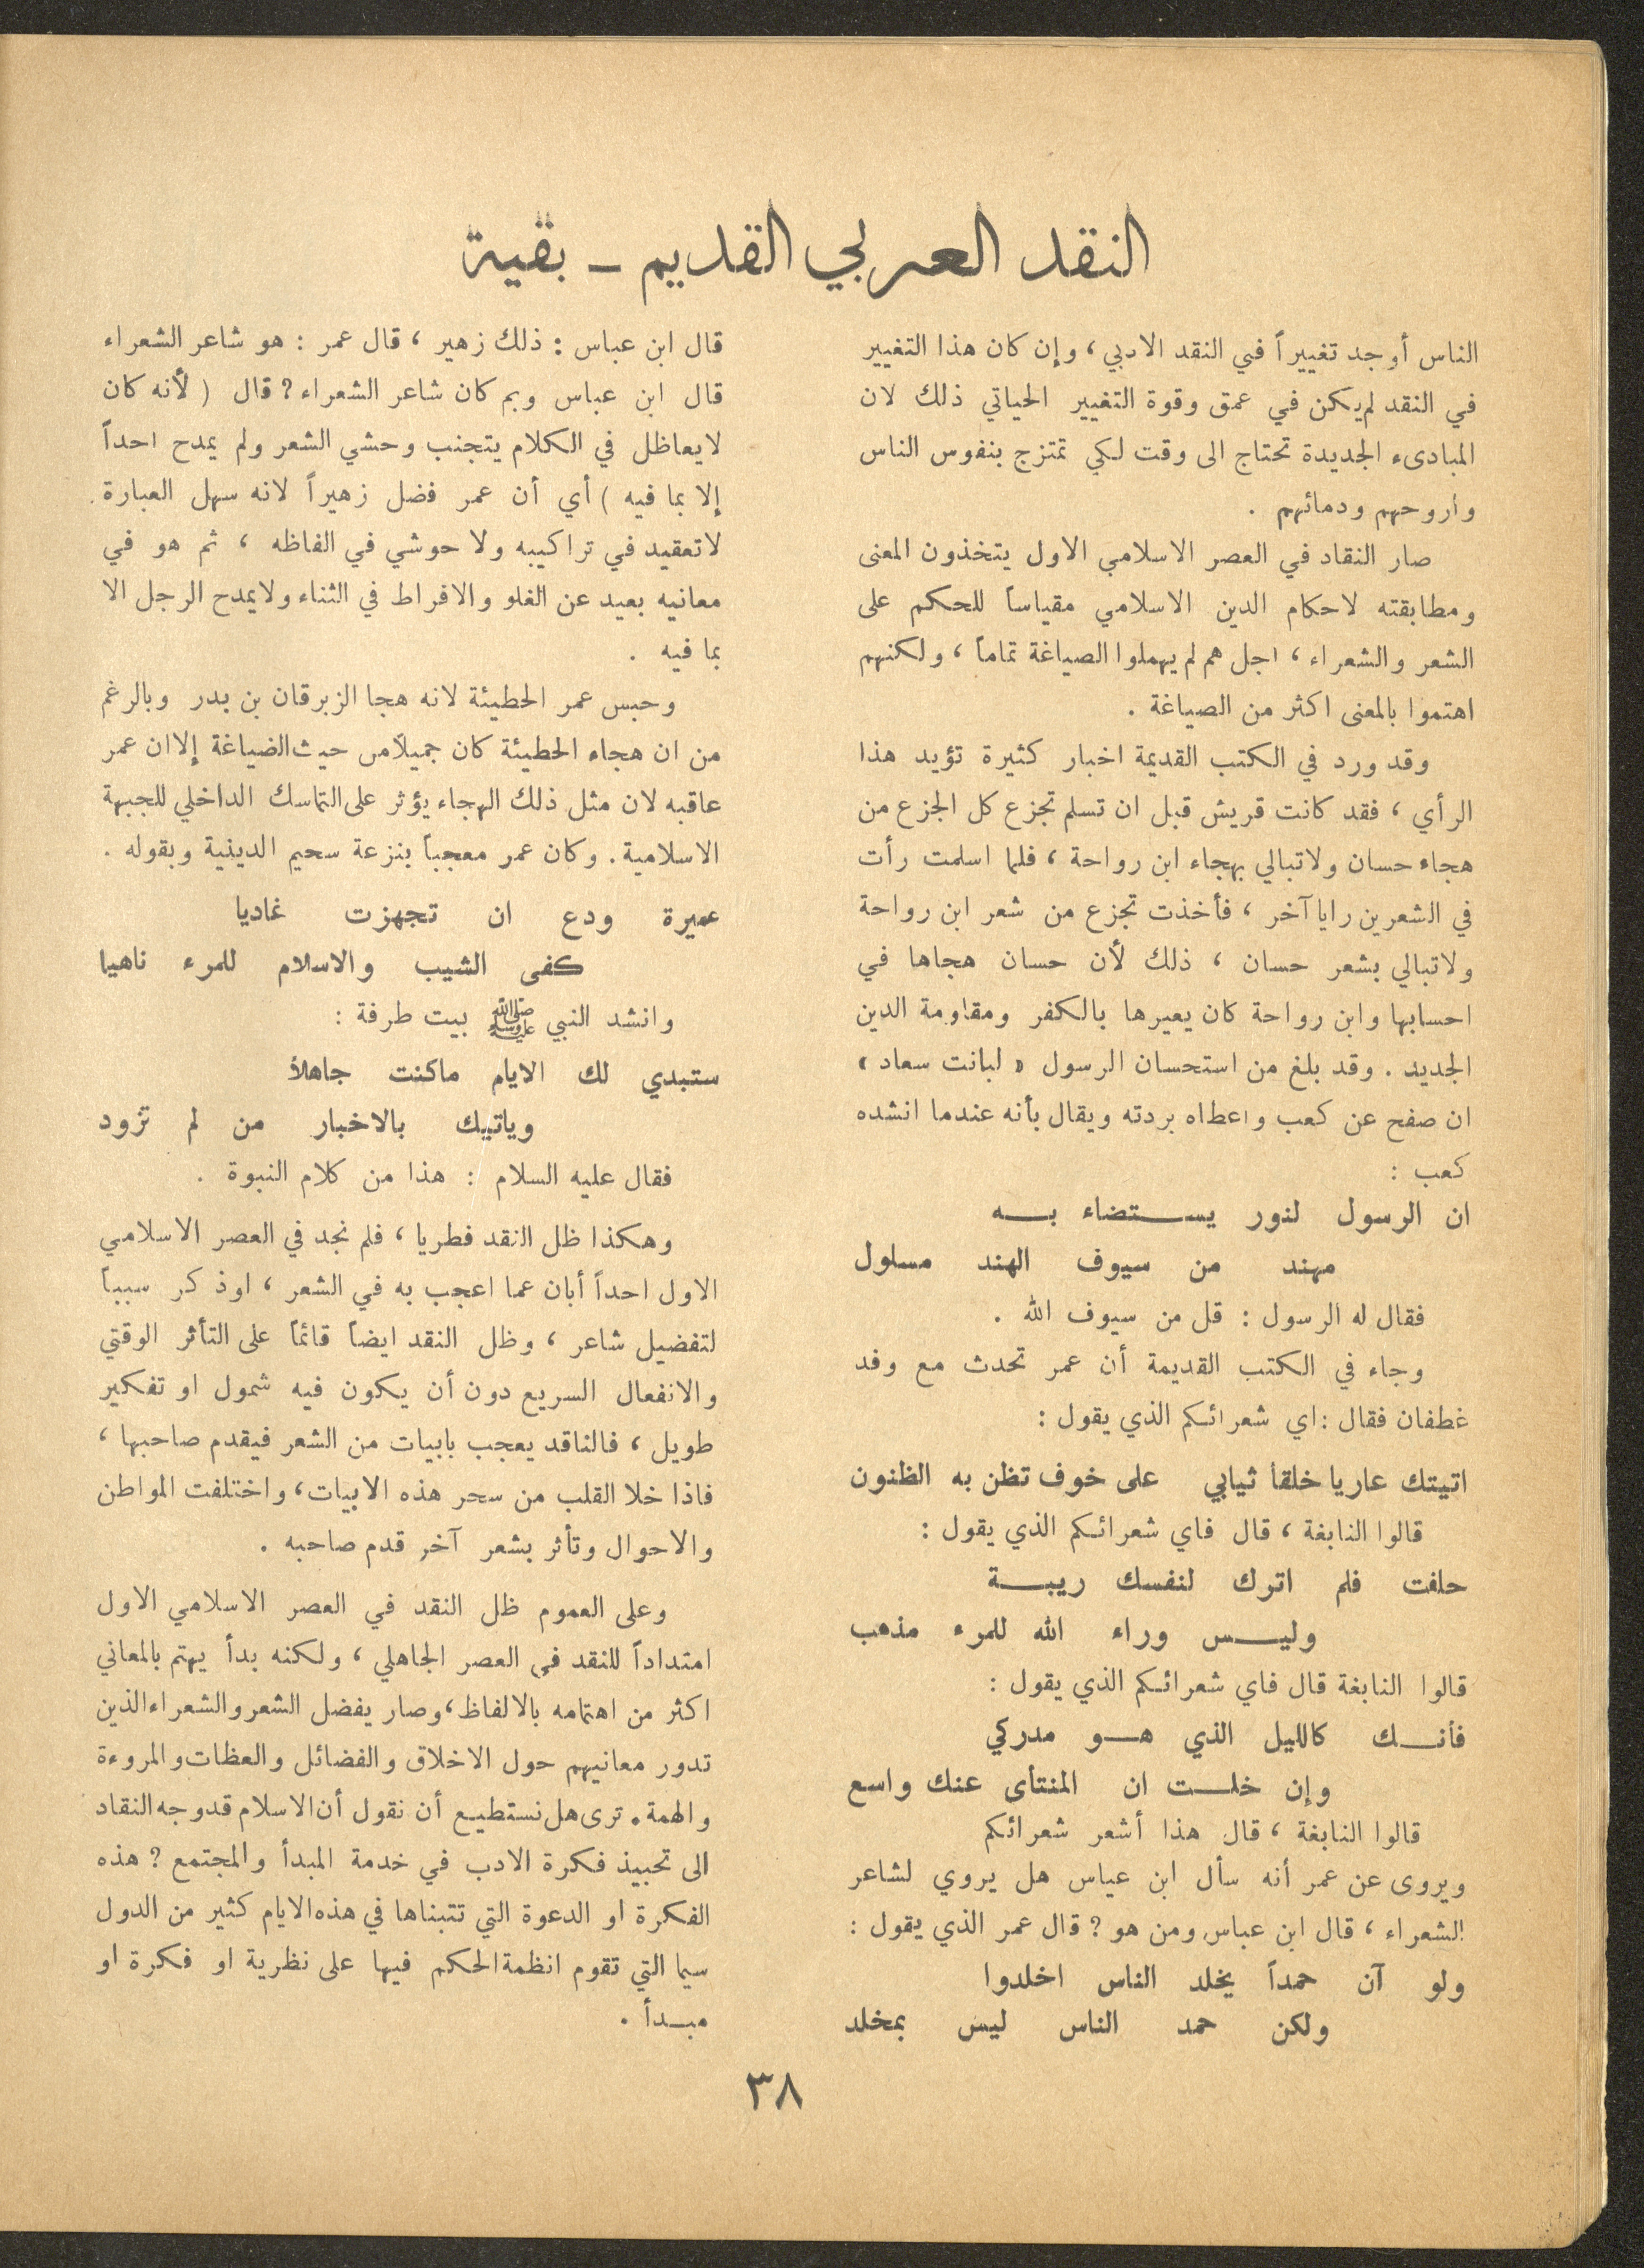 النقد العربي القديم ـ بقية
الناس أوجد تغييراً في النقد الادبي ، وإن كان هذا التغيير
في النقد لم يكن في عمق وقوة التغيير الحياتي ذلك لان
المبادىء الجديدة تحتاج الى وقت لكي تمتزج بنفوس الناس
واروحهم ودمائهم .
صار النقاد في العصر الاسلامي الاول يتخذون المعنى
ومطابقته لاحكام الدين الاسلامي مقياساً للحكم على
الشعر والشعراء ، اجل هم لم يهملوا الصياغة تماماً ، ولكنهم
اهتموا بالمعنى اكثر من الصياغة .
وقد ورد في الكتب القديمة اخبار كثيرة تؤيد هذا
الرأي ، فقد كانت قريش قبل ان تسلم تجزع كل الجزع من
هجاء حسان ولاتبالي بهجاء ابن رواحة ، فلما اسلمت رأت
في الشعرين رايا آخر ، فأخذت تجزع من شعر ابن رواحة
ولاتبالي بشعر حسان ، ذلك لأن حسان هجاها في
احسابها وابن رواحة كان يعيرها بالكفر ومقاومة الدين
الجديد . وقد بلغ من استحسان الرسول « لبانت سعاد »
ان صفح عن كعب واعطاه بردته ويقال بأنه عندما انشده
كعب :
ان الرسول لنور يستضاء به
مهند من سيوف الهند مسلول
فقال له الرسول : قل من سيوف الله .
وجاء في الكتب القديمة أن عمر تحدث مع وفد
غطفان فقال : اي شعرائكم الذي يقول :
اتيتك عاريا خلقاً ثيابي على خوف تظن به الظنون
قالوا النابغة ، قال فاي شعرائكم الذي يقول :
حلفت فلم اترك لنفسك ريبة
وليس وراء الله للمرء مذهب
قالوا النابغة قال فاي شعرائكم الذي يقول :
فأنك كالليل الذي هو مدركي
وإن خلت ان المنتأى عنك واسع
قالوا النابغة ، قال هذا أشعر شعرائكم
ويروى عن عمر أنه سأل ابن عياس هل يروي لشاعر
الشعراء ، قال ابن عباس ومن هو ؟ قال عمر الذي يقول :
ولو آن حمداً يخلد الناس اخلدوا
ولكن حمد الناس ليس بمخلد
قال ابن عباس : ذلك زهير ، قال عمر : هو شاعر الشعراء
قال ابن عباس وبم كان شاعر الشعراء ؟ قال ( لأنه كان
لايعاظل في الكلام يتجنب وحشي الشعر ولم يمدح احداً
إلا بما فيه ) أي أن عمر فضل زهيراً لانه سهل العبارة
لاتعقيد في تراكيبه ولا حوشي في الفاظه ، ثم هو في
معانيه بعيد عن الغلو والافراط في الثناء ولايمدح الرجل الا
بما فيه .
وحبس عمر الحطيئة لانه هجا الزبرقان بن بدر وبالرغم
من ان هجاء الحطيئة كان جميلاًمن حيث الضياغة إلاان عمر
عاقبه لان مثل ذلك الهجاء يؤثر على التماسك الداخلي للجبهة
الاسلامية . وكان عمر معجباً بنزعة سحيم الدينية وبقوله .
عميرة ودع ان تجهزت غاديا
كفى الشيب والاسلام للمرء ناهيا
وانشد النبي ﷺ بيت طرفة :
ستبدي لك الايام ماكنت جاهلاً
وياتيك بالاخبار من لم تزود
فقال عليه السلام : هذا من كلام النبوة .
وهكذا ظل النقد فطريا ، فلم نجد في العصر الاسلامي
الاول احداً أبان عما اعجب به في الشعر ، اوذكر سبباً
لتفضيل شاعر ، وظل النقد ايضاً قائماً على التأثر الوقتي
والانفعال السريع دون أن يكون فيه شمول او تفكير
طويل ، فالناقد يعجب بابيات من الشعر فيقدم صاحبها ،
فاذا خلا القلب من سحر هذه الابيات ، واختلفت المواطن
والاحوال وتأثر بشعر آخر قدم صاحبه .
وعلى العموم ظل النقد في العصر الاسلامي الاول
امتداداً للنقد في العصر الجاهلي ، ولكنه بدأ يهتم بالمعاني
اكثر من اهتمامه بالالفاظ ، وصار يفضل الشعر والشعراء الذين
تدور معانيهم حول الاخلاق والفضائل والعظات والمروءة
والهمة . ترى هل نستطيع أن نقول أن الاسلام قدوجه النقاد
الى تحبيذ فكرة الادب في خدمة المبدأ والمجتمع ؟ هذه
الفكرة او الدعوة التي تتبناها في هذه الايام كثير من الدول
سيما التي تقوم انظمة الحكم فيها على نظرية او فكرة او
مبدأ .
٣٨